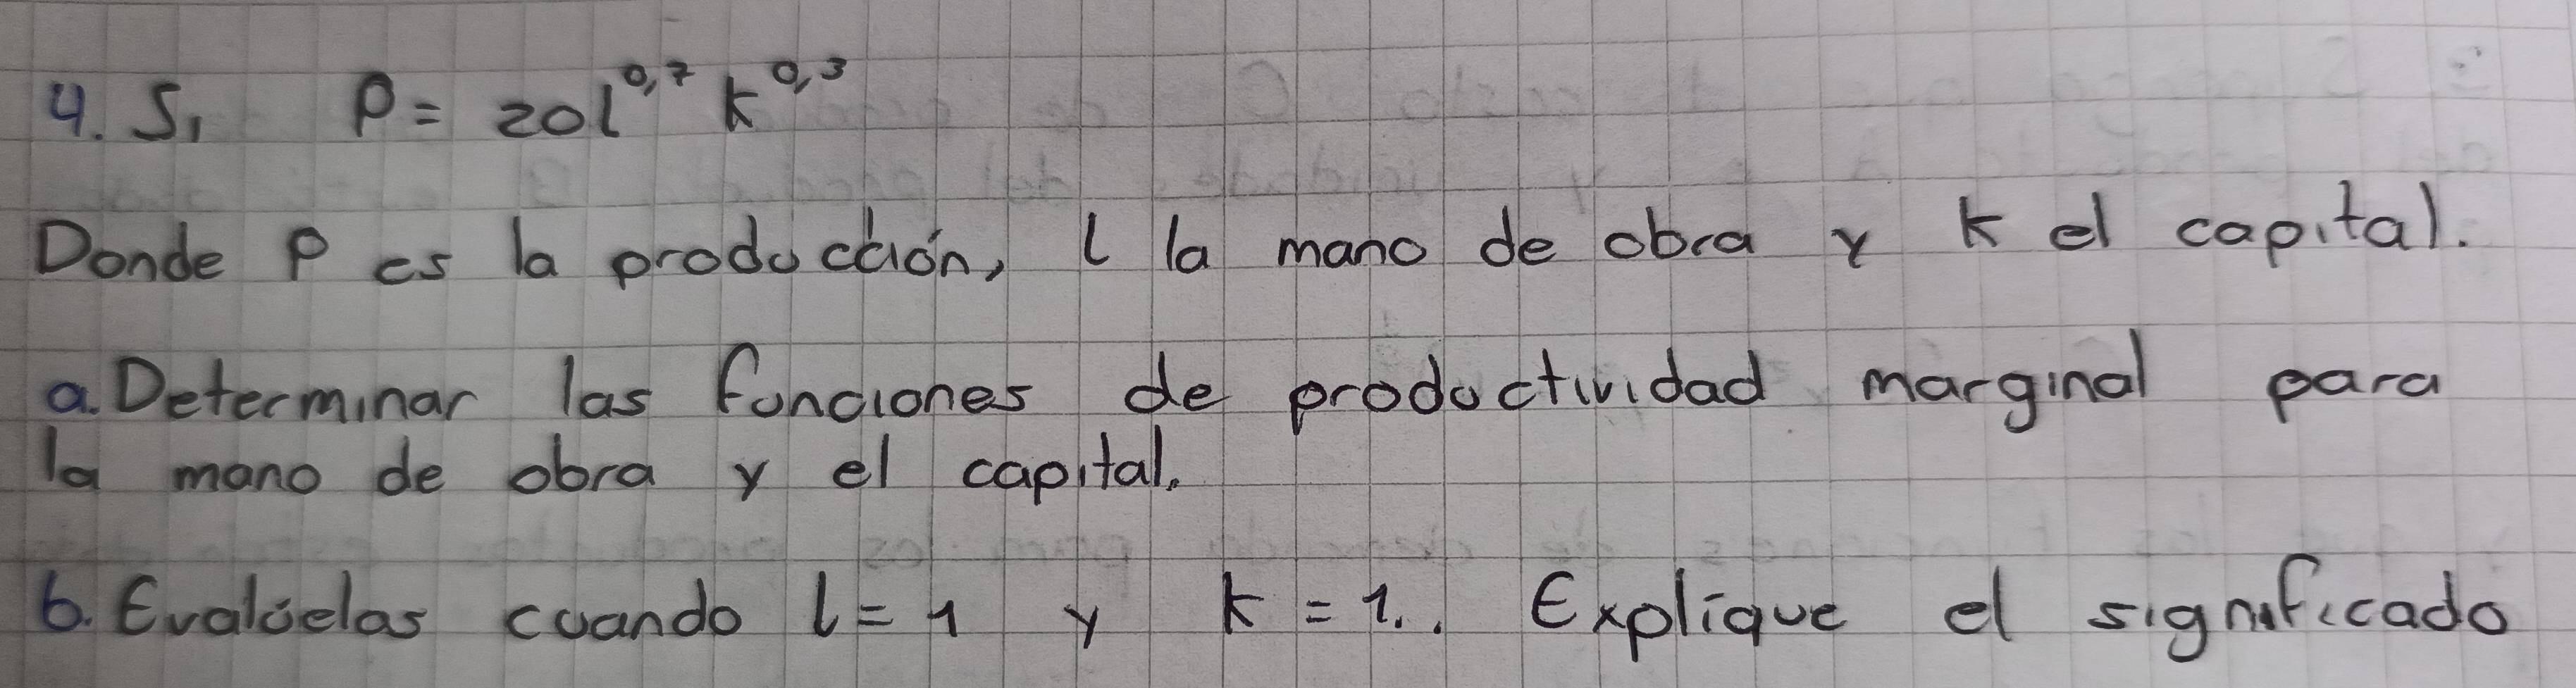 4. Si P = 20 l^0,7 k^0,3
Donde P es la producción, l la mano de obra y k el capital.
a. Determinar las funciones de productividad marginal para
la mano de obra y el capital.
b. Evalúelas cuando l = 1 y k = 1.. Explique el significado